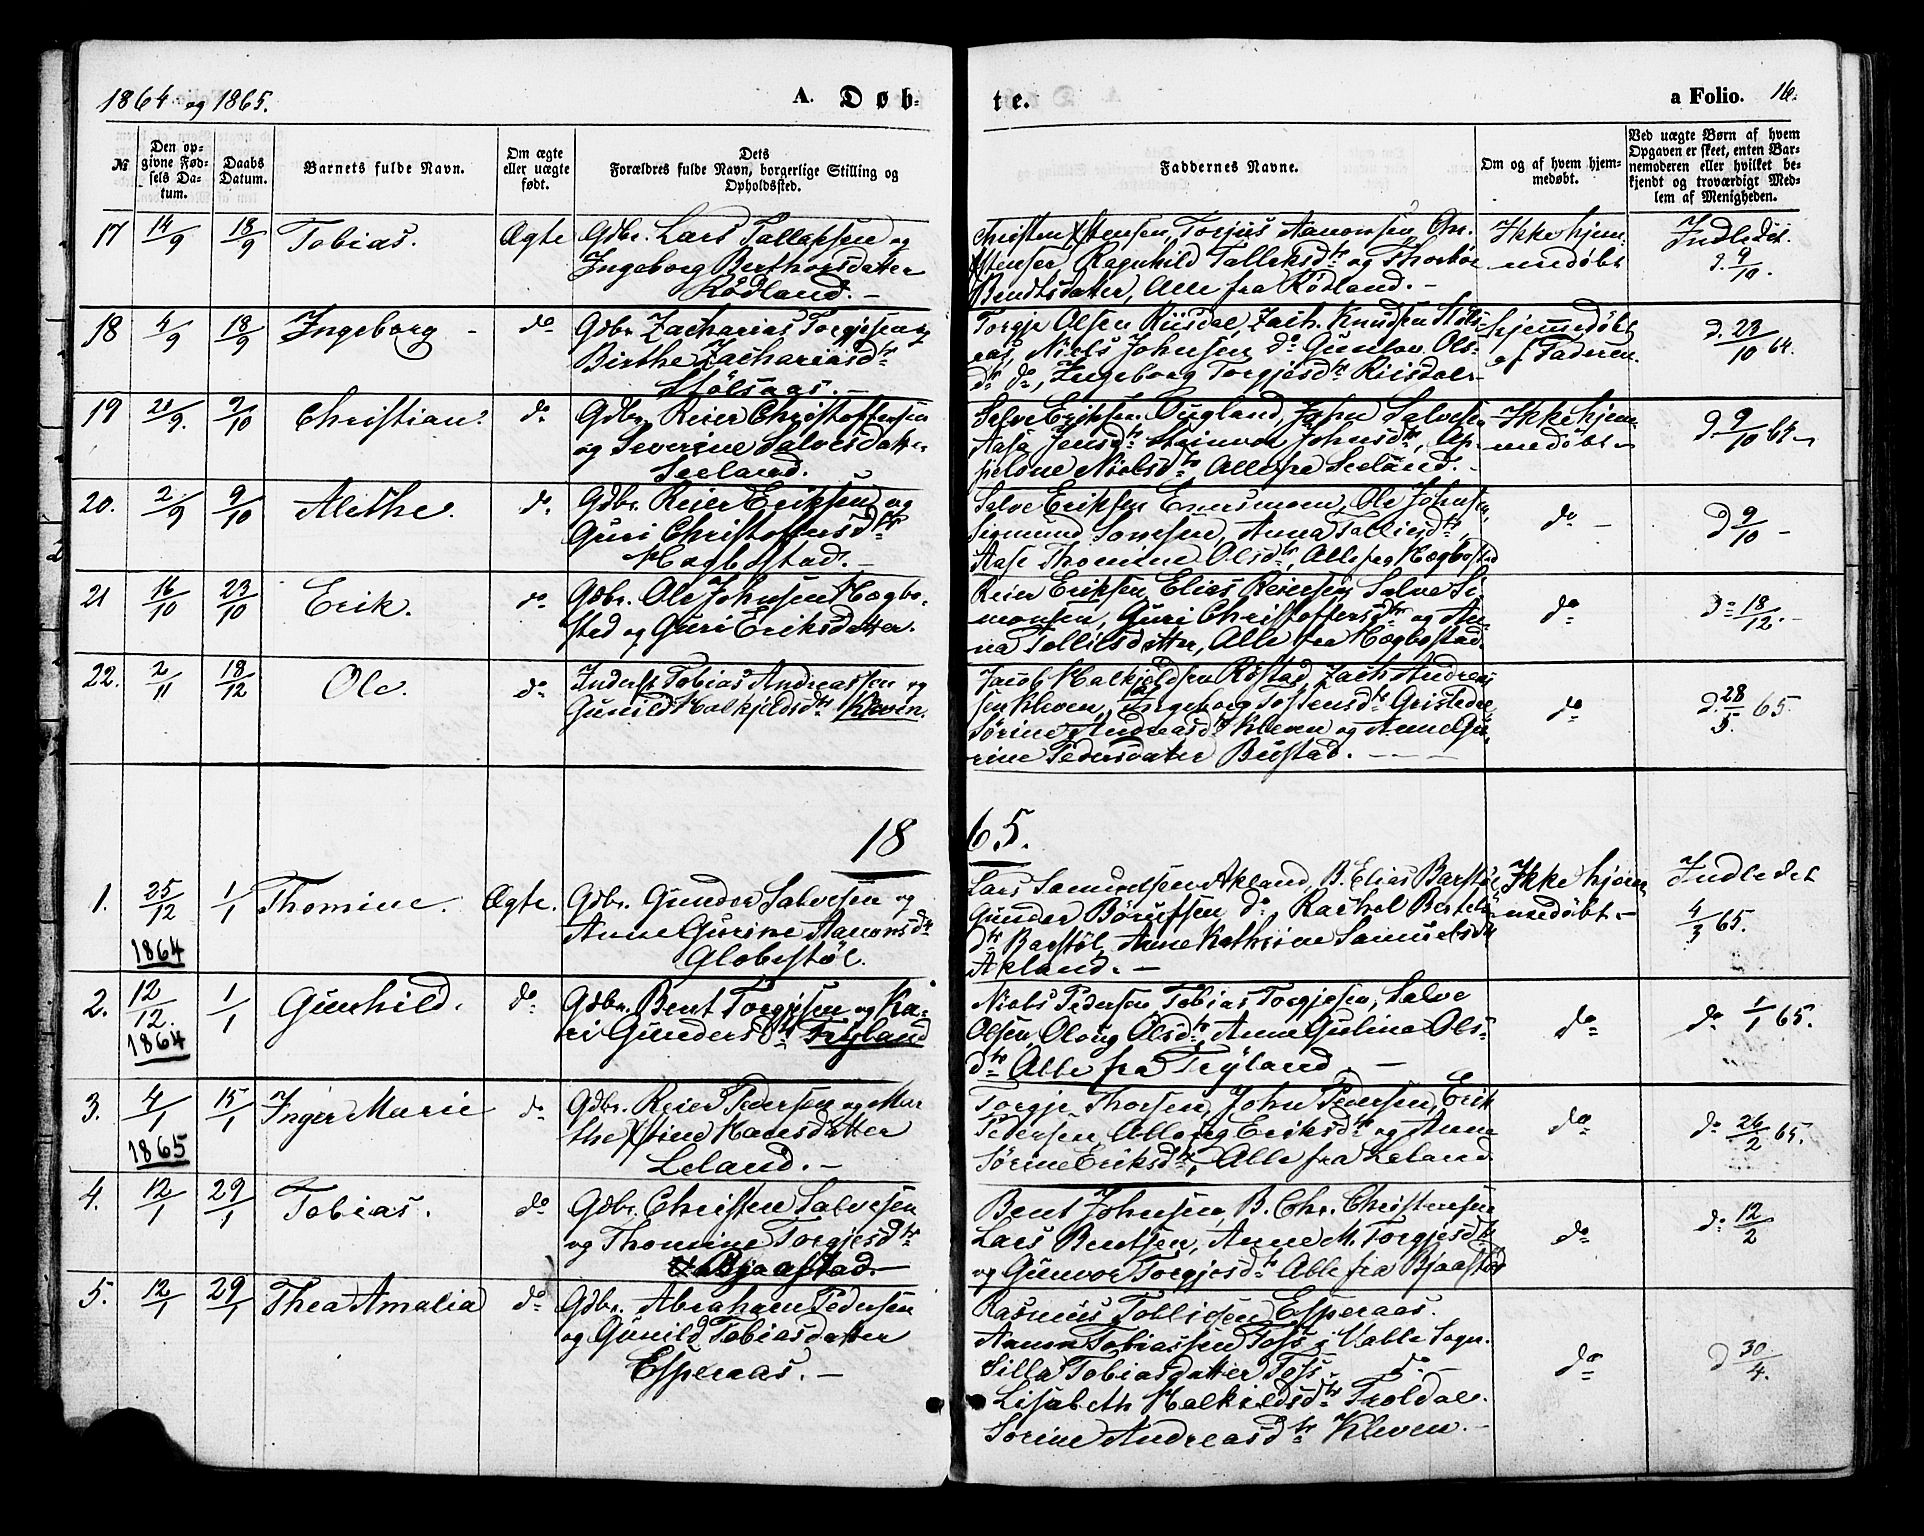 1864 og 1865.
A. Døb-
te.
a Folio. 16.
№
Den op-
givne Fød-
sels Da-
tum.
Daabs
Datum.
Barnets fulde Navn.
Om ægte
eller uægte
født.
Dets
Forældres fulde Navn, borgerlige Stilling og
Opholdssted.
Faddernes Navne.
Om og af hvem hjem-
medøbt.
Ved uægte Børn af hvem
Opgaven er skeet, enten Bar-
nemoderen eller hvilket be-
kjendt og troværdigt Med-
lem af Menigheden.
17 14/9 18/9 Tobias. Ægte Gdbr. Lars Tallaksen og
Ingeborg Berthorsdatter
Rödland. —
Christen Xstensen, Torjus Aanonsen, Chr.
Xstensen, Ragnhild Tallaksdtr og Thorbor
Bendtsdatter, Alle fra Rödland. —
Ikke hjem-
medøbt
Indledet.
d. 9/10.
18 4/9 18/9 Ingeborg - do Gdbr. Zacharias Torgjesen og
Birthe Zachariasdtr
Stölsaas. —
Torgje Olsen Riisdal, Zach. Knudsen Stöls-
aas, Niels Johnsen do Gunlov Ols-
dtr do, Ingeborg Torgjesdtr Riisdal
hjemmedøbt
af Faderen.
d. 23/10 64.
19 21/9. 9/10 Christian. do Gdbr. Reier Christoffersen
og Severine Salvesdatter
Seeland.
Salve Eriksen Ougland, John Salvesen
Aasa Jensdtr Steinvor Johnsdtr, Ap-
pelone Nielsdtr Alle fra Seeland. -
Ikke hjem-
medøbt -
d 9/10 64
20. 2/9 9/10 Alethe. do Gdbr. Reier Eriksen og
Guri Christoffersdtr
Hægbostad. —
Salve Eriksen, Ole Johnsen,
Sigmund, Anna Tollisdtr,
Aase Thomine Olsdtr, Alle fra Hægbostad
do -
d 9/10 -
21 16/10 23/10 Erik. do Gdbr. Ole Johnsen Hægbo-
sted og Guri Eriksdatter.
Reier Eriksen, Elias Reiersen, Salve Si-
monsen, Guri Christoffersdtr og An-
na Tollilsdatter, Alle fra Hægbostad.
do
do 18/12. -
22. 2/11 18/12 Ole. do Inderst Tobias Andreassen og
Gunild Halkjeldsdtr Kleven.
Jacob Halkjeldsen Röstad, Zach. Andreas-
sen Kleven, Ingeborg Tostensdtr Gristedee
Sörine Andreasdtr Kleven og Anne Gu-
rine Pedersdatter Bustad. - - -
do
d. 28/5 65.
18
65.
1. 25/12 1/1 Thomine. Ægte. Gdbr. Gunder Salvesen og
1864 Anne Gurine Aanonsdtr
Globestöl.
Lars Samuelsen Akland, B. Elias Barstöl
Gunder Börufsen do Rachel Bertels-
dtr Barstöl, Anne Kathrine Samuelsdtr
Akland. —
Ikke hjem-
medøbt -
Indledet
4/3 65.
2. 12/12. 1/1 Gunhild. do Gdbr. Bent Torgjesen og Ka-
1864 ri Gundersdtr Tryland
Niels Pedersen, Tobias Torgjesen, Salve
Olsen, Oloug Olsdtr, Anne Gulina Ols-
dtr Alle fra Tryland. —
do
do 1/1 65.
3. 4/1 15/1 Inger Marie do Gdbr. Reier Pedersen og Mar-
1865 the Xstine Hansdatter
Leland. —
Torgje Thorsen, John Pedersen, Erik
Pedersen, Alloug Eriksdtr og Anne
Sörine Eriksdtr, Alle fra Leland.
do
do 26/2 65.
4. 12/1 29/1 Tobias. do Gdbr. Christen Salvesen
og Thomine Torgjesdtr
Bjaastad. —
Bent Johnsen, B. Chr. Christensen
Lars Bentsen, Anne M. Torgjesdtr
og Gunvor Torgjesdtr Alle fra Bjaastad
do
do 12/2
5. 12/1 29/1 Thea Amalia do Gdbr. Abraham Pedersen
og Gunild Tobiasdatter
Esperaas. —
Rasmus Tollisen Esperaas.
Aanon Tobiassen Foss i Valle Sogn.
Silla Tobiasdatter Foss - do —
Lisabeth Halkildsdtr Troldal.
Sorine Andreasdtr Kleven. —
do
d 30/4.